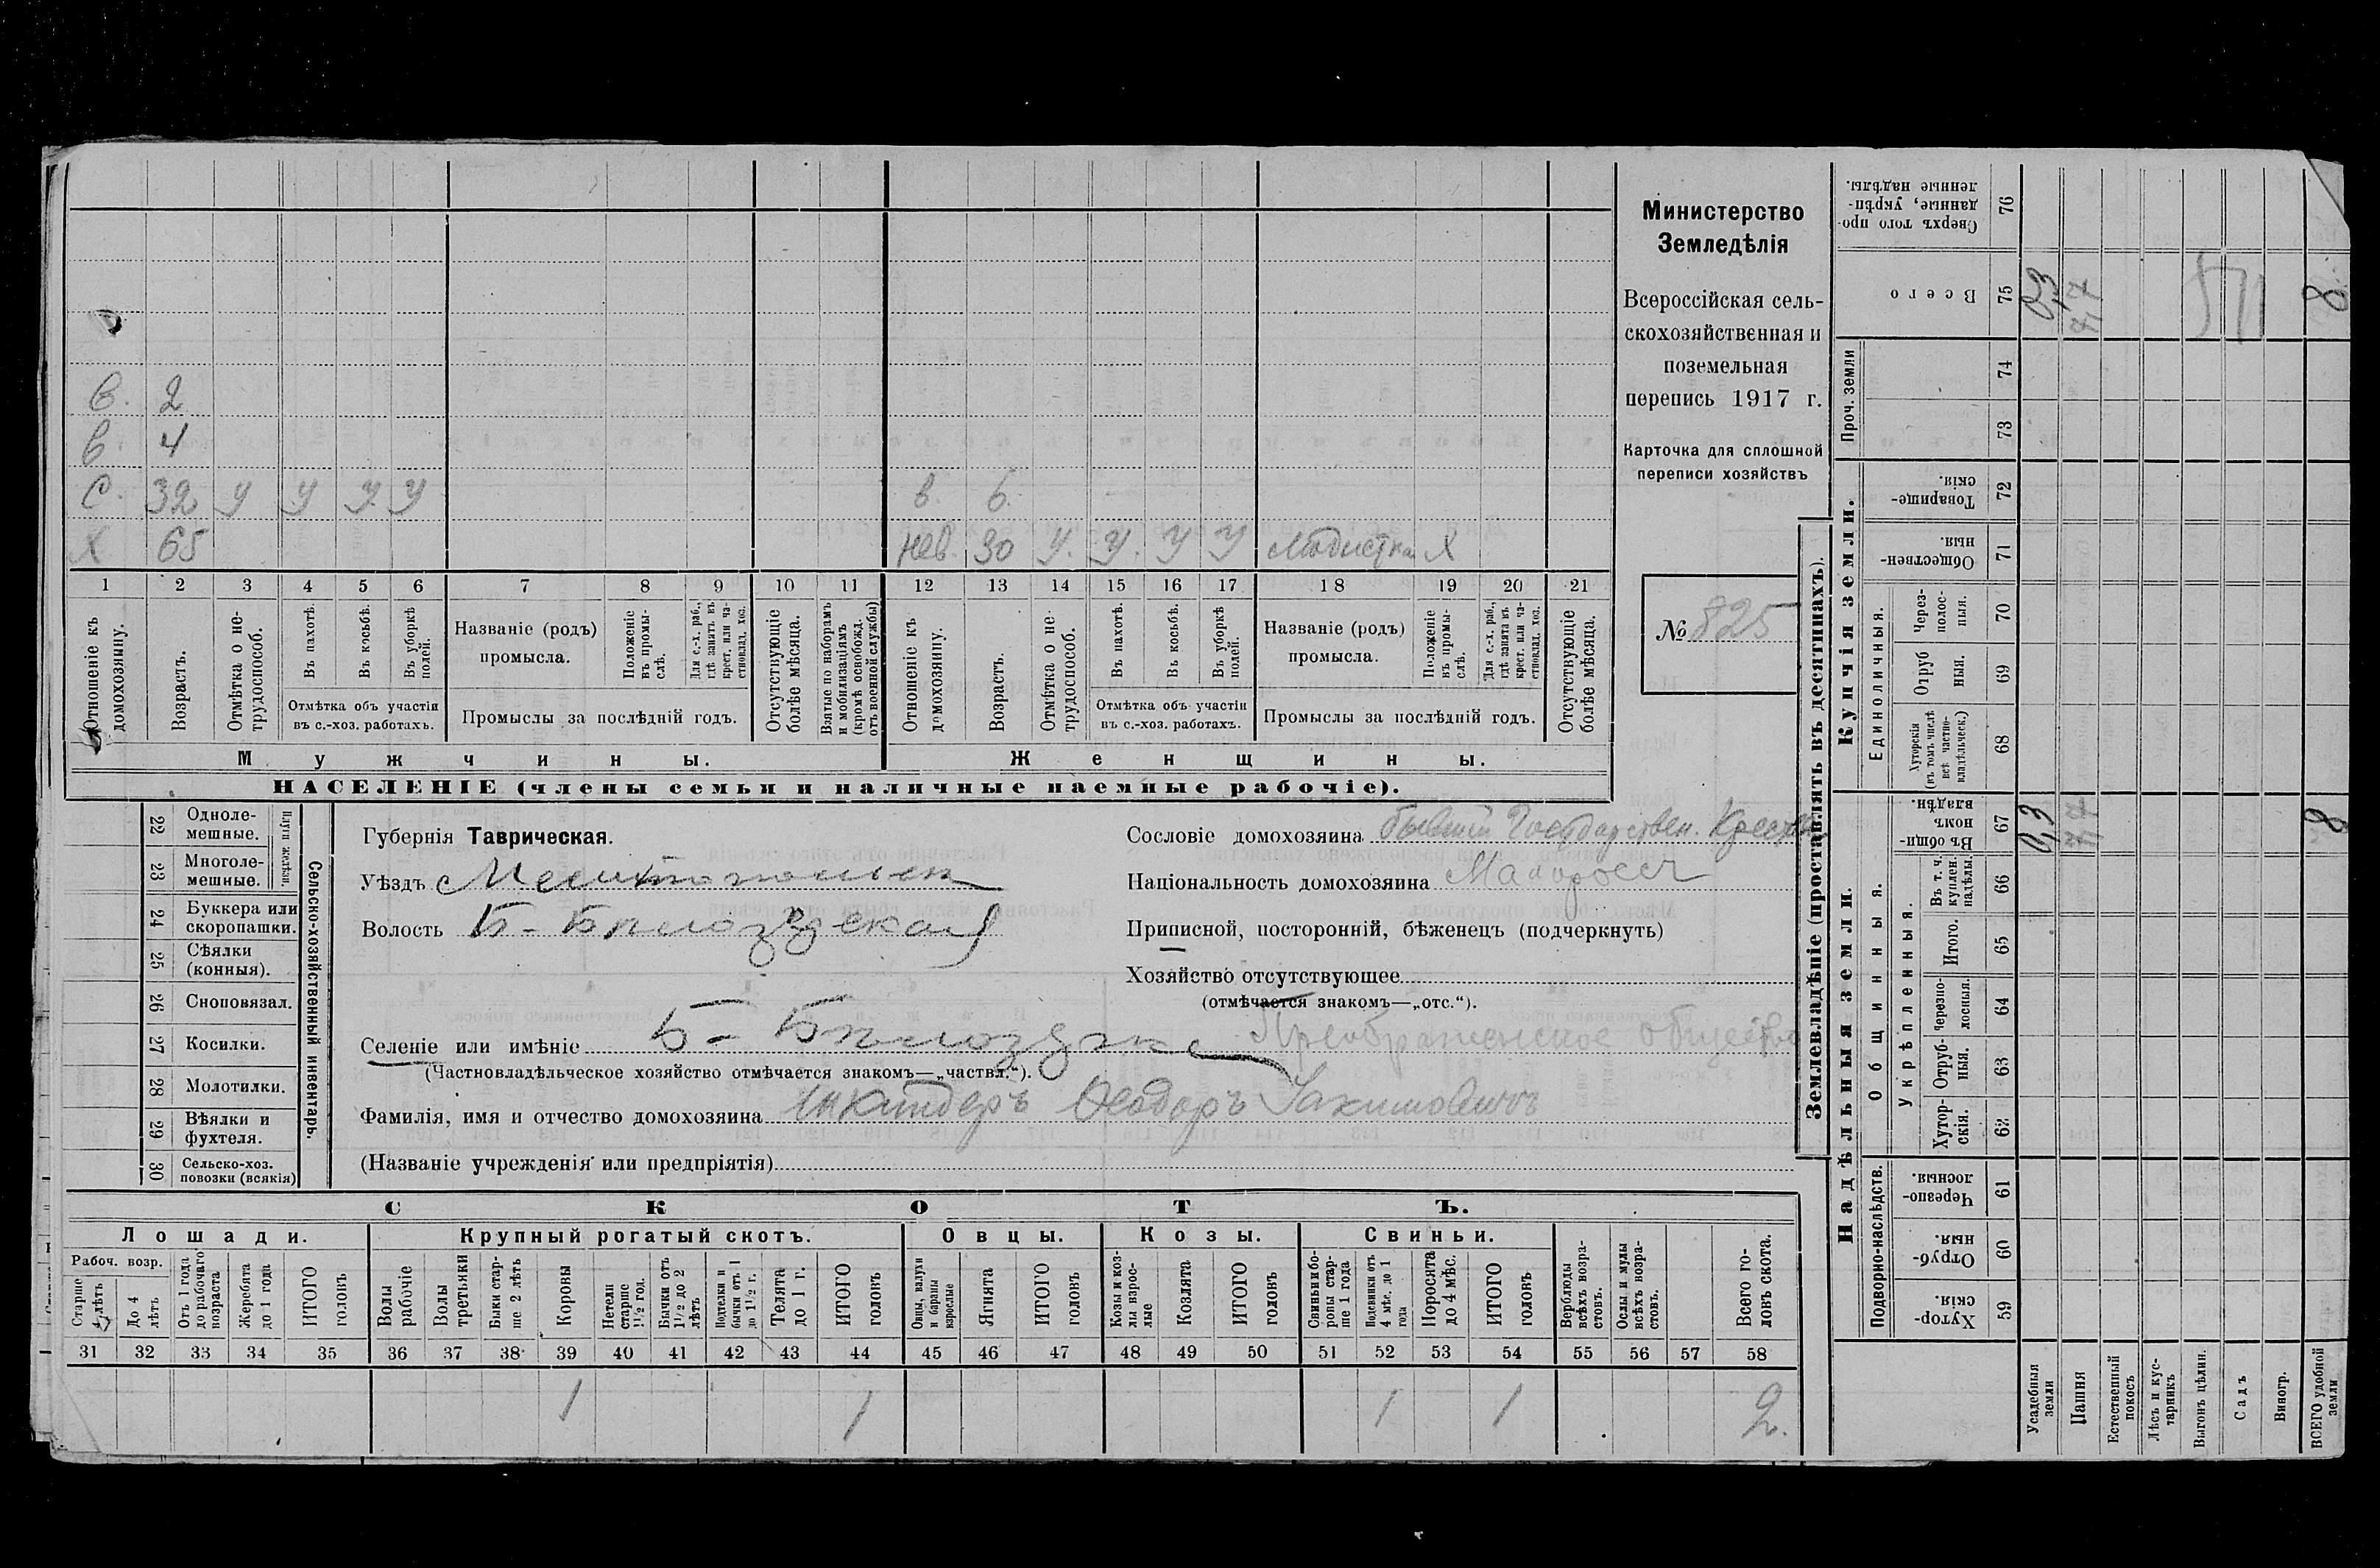 Министерство
Земледѣлія
Всероссійская сель-
скохозяйственная и
поземельная
перепись 1917 г.
Карточка для сплошной
переписи хозяйствъ
№ 825
в. 2
в. 4
С. 32 у у у у
в. 6.
Х 65
нев. 30 у. у. у у Модистка Х
1 2 3 4 5 6 7 8 9 10 11 12 13 14 15 16 17 18 19 20 21
Отношеніе къ домохозяину.
Возрастъ.
Отмѣтка о не-трудоспособ.
Въ пахотѣ.
Въ косьбѣ.
Въ уборкѣ полей.
Отмѣтка объ участіи
въ с.-хоз. работахъ.
Названіе (родъ)
промысла.
Положеніе въ промы-слѣ.
Для с.-х. раб., гдѣ занятъ въ крест. или ча-стновлад. хоз.
Промыслы за послѣдній годъ.
Отсутствующіе болѣе мѣсяца.
Взятые по наборамъ и мобилизаціямъ (кромѣ освобожд. отъ военной службы)
Отношеніе къ домохозяину.
Возрастъ.
Отмѣтка о не-трудоспособ.
Въ пахотѣ.
Въ косьбѣ.
Въ уборкѣ полей.
Отмѣтка объ участіи
въ с.-хоз. работахъ.
Названіе (родъ)
промысла.
Положеніе въ промы-слѣ.
Для с.-х. раб., гдѣ занята въ крест. или ча-стновлад. хоз.
Промыслы за послѣдній годъ.
Отсутствующіе болѣе мѣсяца.
Мужчины.
Женщины.
НАСЕЛЕНІЕ (члены семьи и наличные наемные рабочіе).
22 Одноле-мешные.
23 Многоле-мешные.
Плуги желѣзн.
24 Буккера или скоропашки.
25 Сѣялки (конныя).
26 Сноповязал.
27 Косилки.
28 Молотилки.
29 Вѣялки и фухтеля.
30 Сельско-хоз. повозки (всякія)
Сельско-хозяйственный инвентарь.
Губернія Таврическая.
Уѣздъ Мелитопольск
Волость Б-Бѣлозерская
Селеніе или имѣніе Б-Бѣлозерка Преображенское общество
(Частновладѣльческое хозяйство отмѣчается знакомъ—„частвл.“).
Фамилія, имя и отчество домохозяина Ѳеодоръ
(Названіе учрежденія или предпріятія)
Сословіе домохозяина бывшій Государствен. Крест
Національность домохозяина Малоросс
Приписной, посторонній, бѣженецъ (подчеркнуть)
Хозяйство отсутствующее
(отмѣчается знакомъ—„отс.“).
СКОТЪ.
Лошади.
Крупный рогатый скотъ.
Овцы.
Козы.
Свиньи.
Рабоч. возр.
Старше 4 лѣтъ
До 4 лѣтъ
Отъ 1 года до рабочаго возраста
Жеребята до 1 года
ИТОГО головъ
Волы рабочіе
Волы третьяки
Быки стар-ше 2 лѣтъ
Коровы
Нетели старше 1½ год.
Бычки отъ 1½ до 2 лѣтъ
Подтелки и бычки отъ 1 до 1½ г.
Телята до 1 г.
ИТОГО головъ
Овцы, валухи и бараны взрослые
Ягнята
ИТОГО головъ
Козы и коз-лы взрос-лые
Козлята
ИТОГО головъ
Свиньи и бо-ровы стар-ше 1 года
Подсвинки отъ 4 мѣс. до 1 года
Поросята до 4 мѣс.
ИТОГО головъ
Верблюды всѣхъ возра-стовъ.
Ослы и мулы всѣхъ возра-стовъ.
Всего го-ловъ скота.
31 32 33 34 35 36 37 38 39 40 41 42 43 44 45 46 47 48 49 50 51 52 53 54 55 56 57 58
1 1 1 1 2.
Землевладѣніе (проставлять въ десятинахъ).
Надѣльныя земли.
Купчія земли.
Проч. земли
Подворно-наслѣдств.
Общинныя.
Укрѣпленныя.
Единоличныя.
Сверхъ того про-данные, укрѣп-ленные надѣлы. 76
Всего 75 0,3 7,7 8
74
73
Товарище-скія. 72
Обществен-ныя. 71
Через-полос-ныя. 70
Отруб-ныя. 69
Хуторскія (въ томъ числѣ всѣ частно-владѣльческ.) 68
Въ общин-номъ владѣн. 67 0,3 7,7 8
Въ т. ч. куплен. надѣлы. 66
Итого. 65
Черезпо-лосныя. 64
Отруб-ныя. 63
Хутор-скія. 62
Черезпо-лосныя. 61
Отруб-ныя. 60
Хутор-скія. 59
Усадебныя земли
Пашня
Естественный покосъ
Лѣсъ и кус-тарникъ
Выгонъ цѣлин.
Садъ
Виногр.
ВСЕГО удобной земли